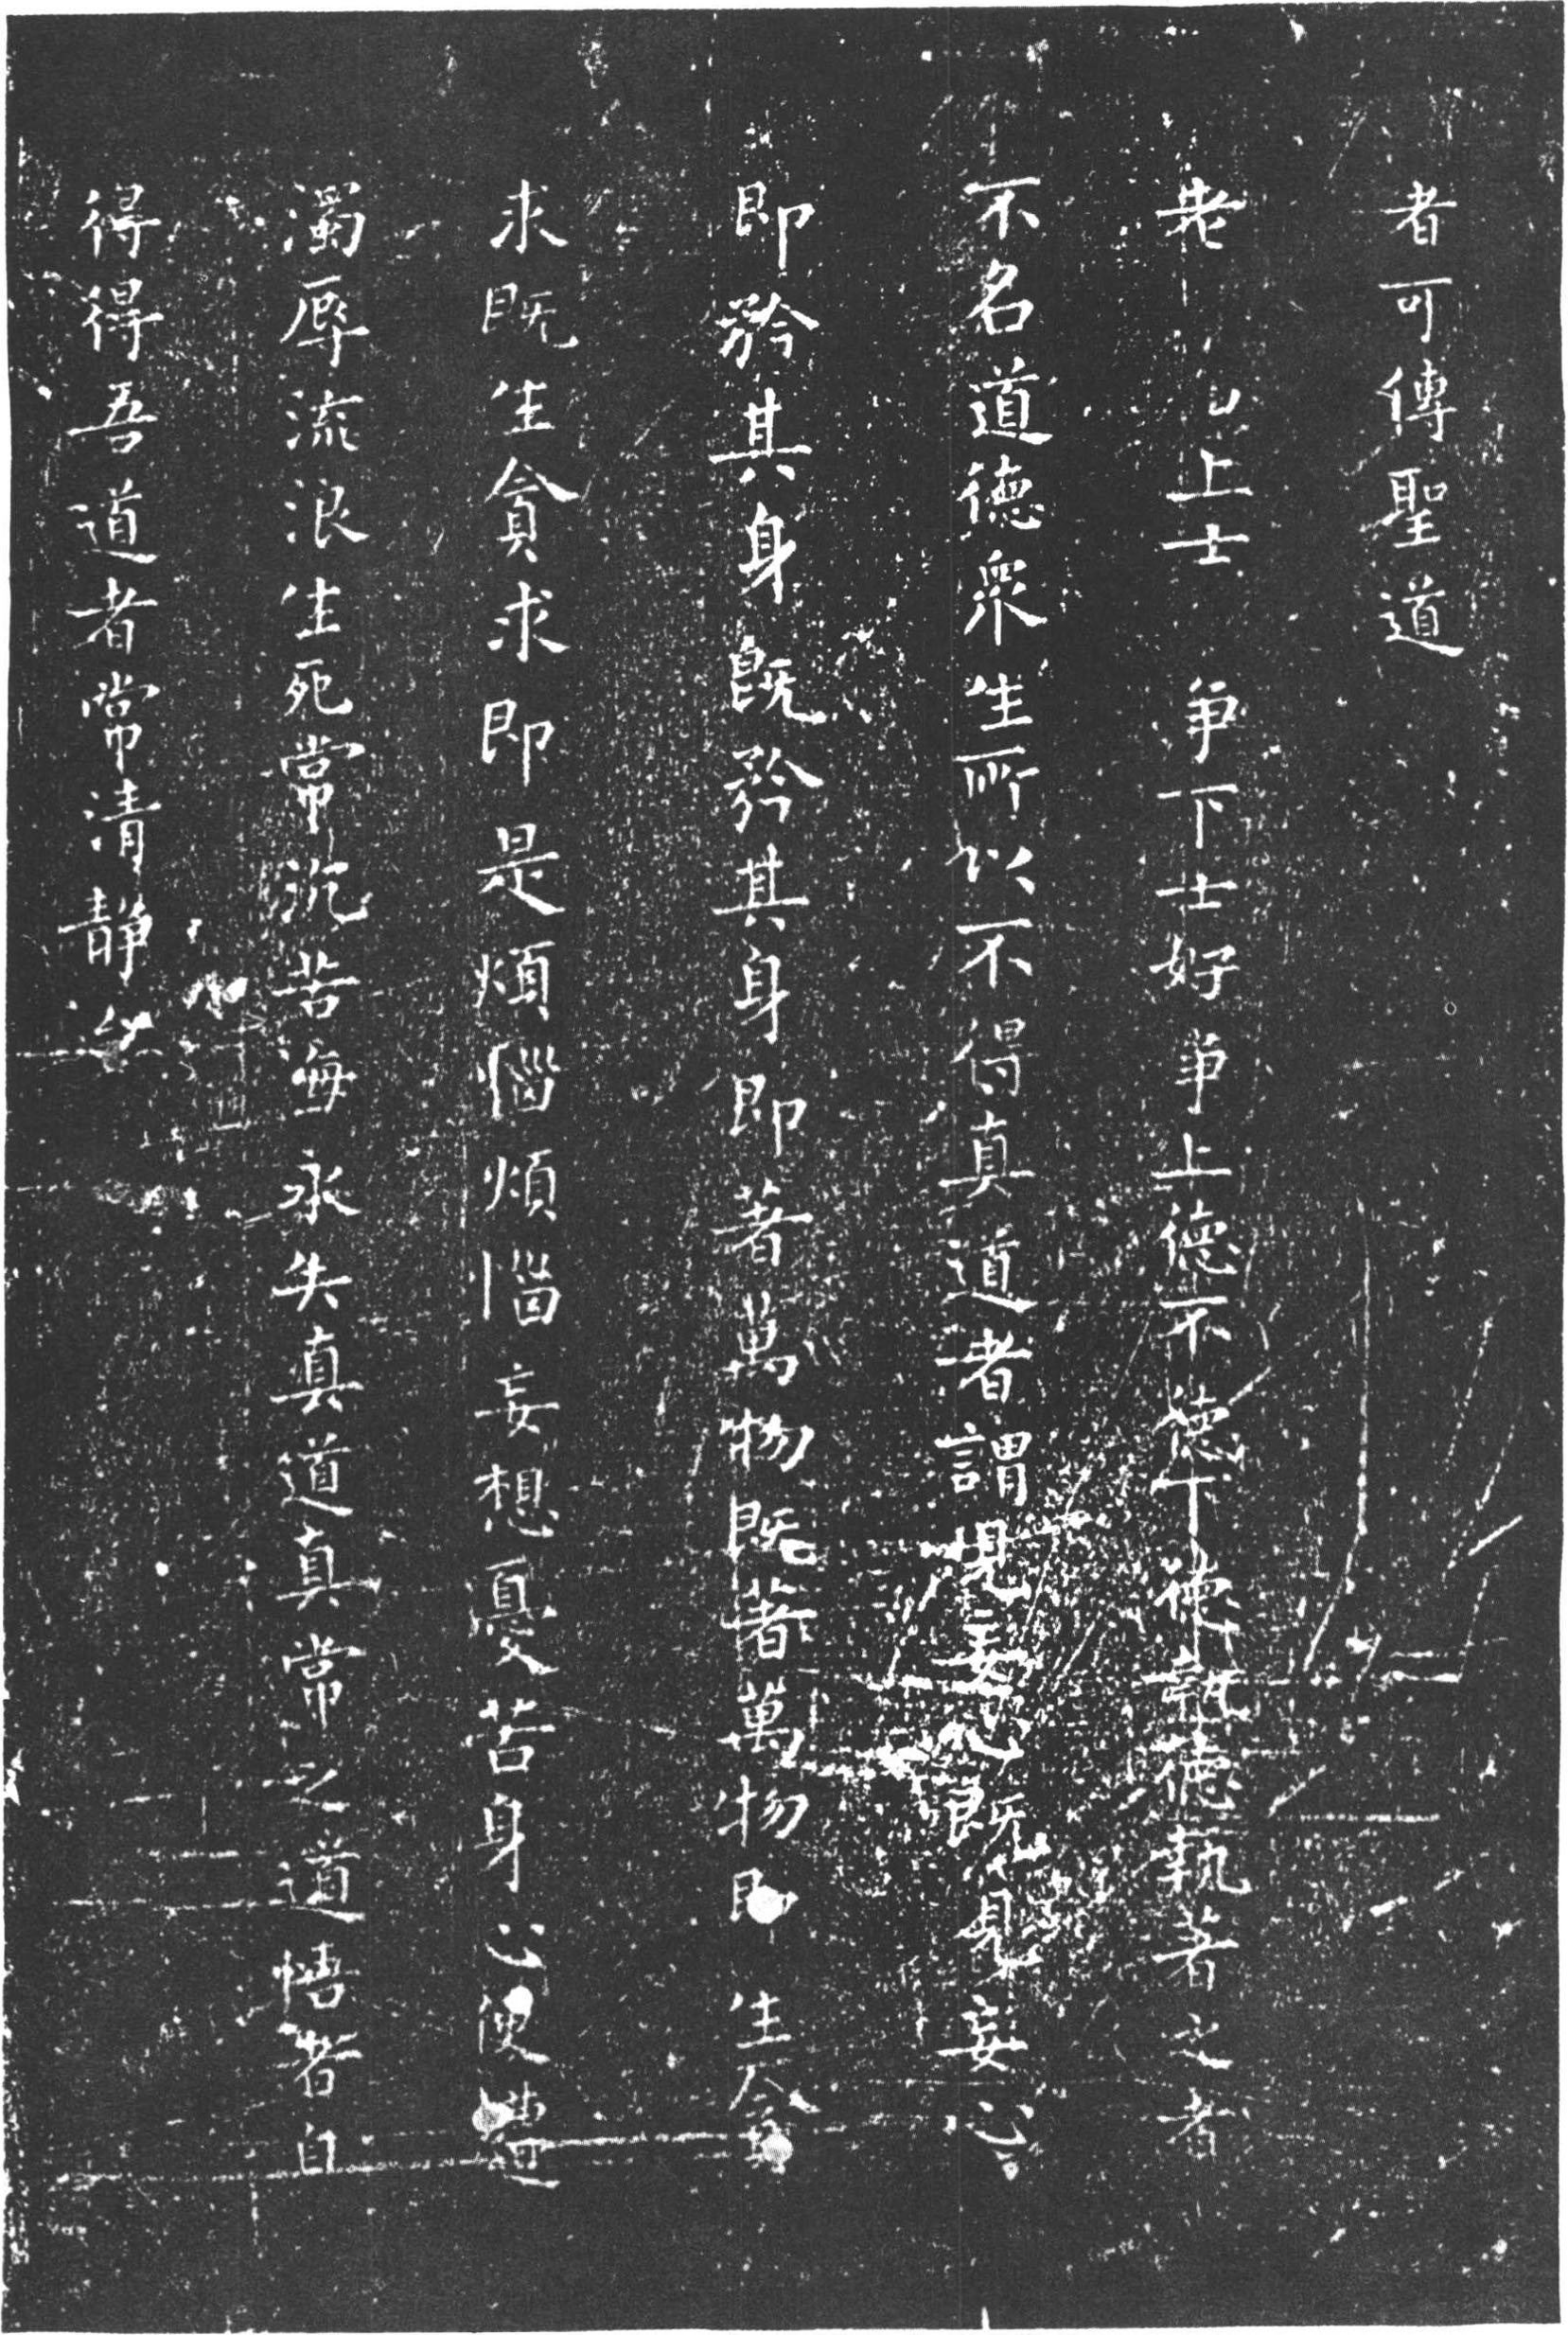 者可傳聖道
老上士争下士好争上德不德下德執德執著之者
不名道德衆生所以不得真道者謂妄心既見妄心
即矜其身既矜其身即著萬物既著萬物即生貪
求既生貪求即是煩惱煩惱妄想憂苦身心便遭
濁辱流浪生死常沉苦海永失真道真常之道悟者自
得得吾道者常清靜矣